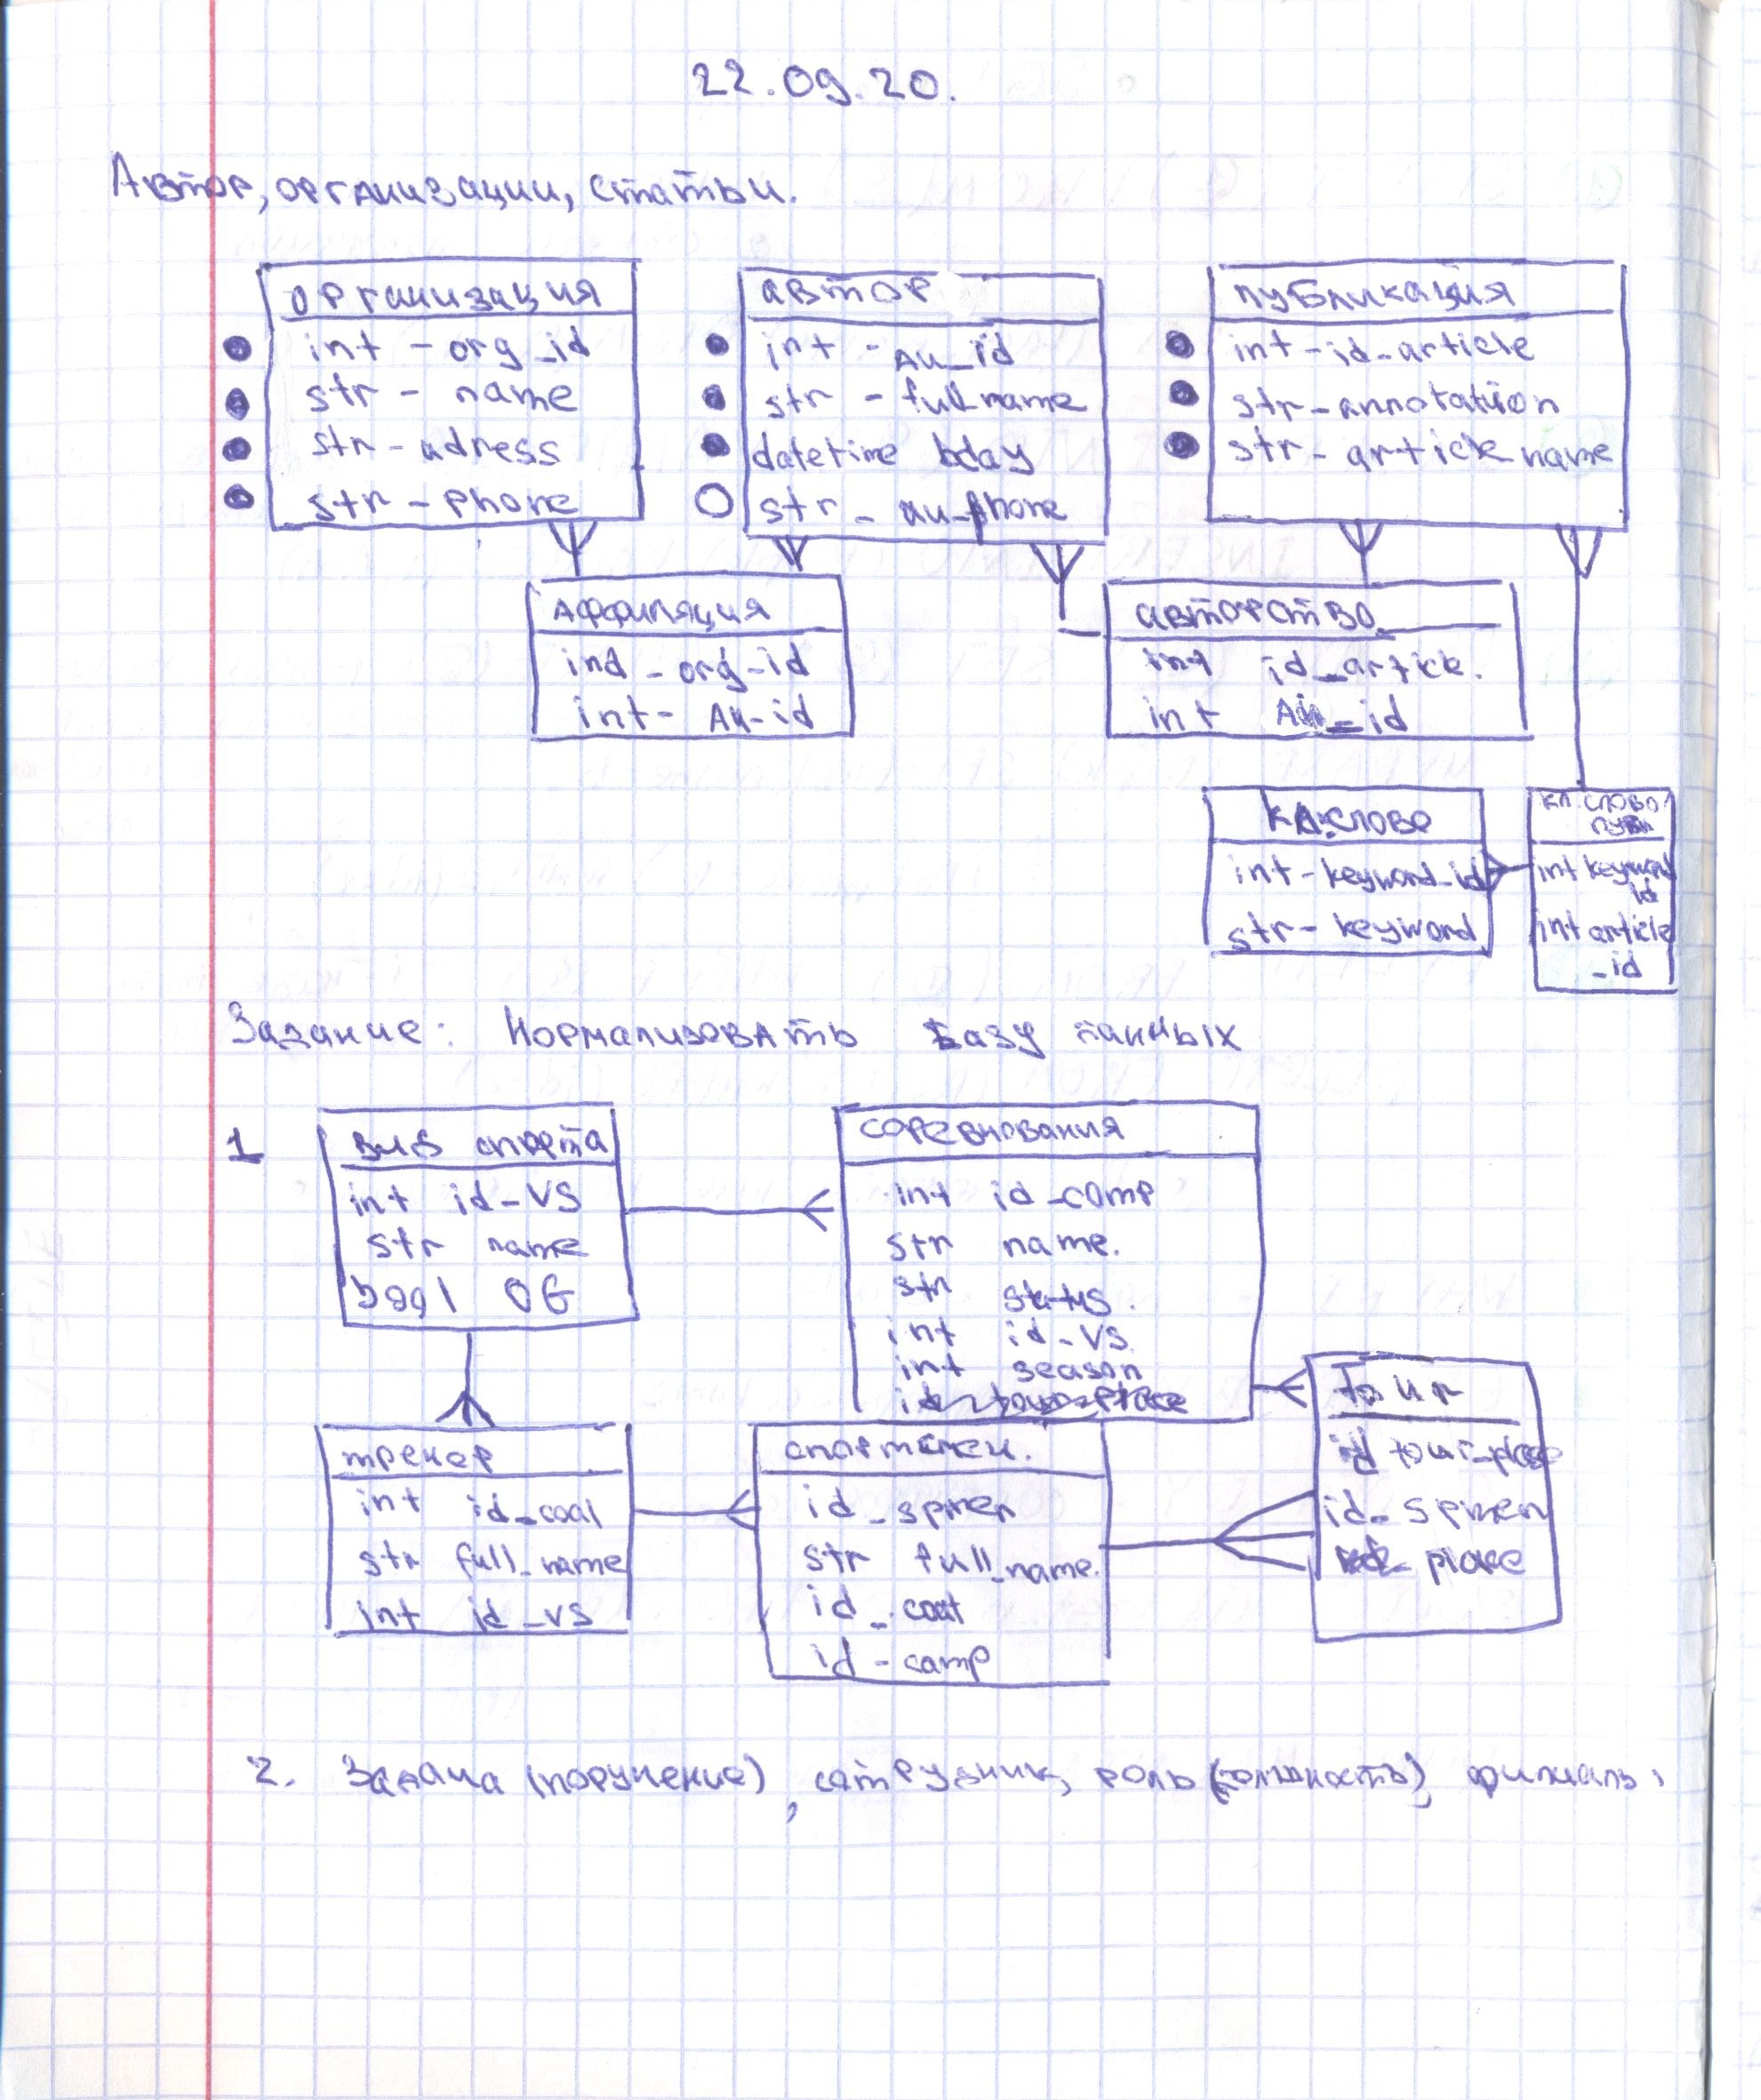 22.09.20.
Автор, организации, статьи.
организация
int - org_id
str - name
str - adress
str - phone
автор
int - Au_id
str - fullname
datetime bday
str - au_phone
публикация
int - id_article
str - annotation
str - article name
Аффиляция
ind - org-id
int - Au-id
авторство
int id_article.
int Au_id
кл.слово
int - keyword_id
str - keyword
кл.слово/
публ
int keyword
id
int article
_id
Задание: Нормализовать базу данных
1
вид спорта
int id-VS
str name
bool OG
соревнования
int id_comp
str name.
str status.
int id-VS
int season
тренер
int id_coal
str full_name
int id_vs
спортсмен.
id_spmen
str full_name.
id_coat
id-camp
tour
id tour-place
id_spmen
place
2. Задача (поручение), сотрудник, роль (должность), филиалы,